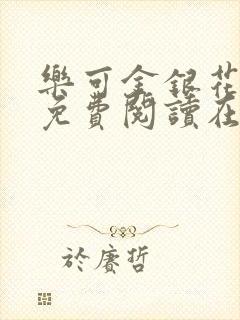 樂可金銀花
免費閱讀在
於賡哲